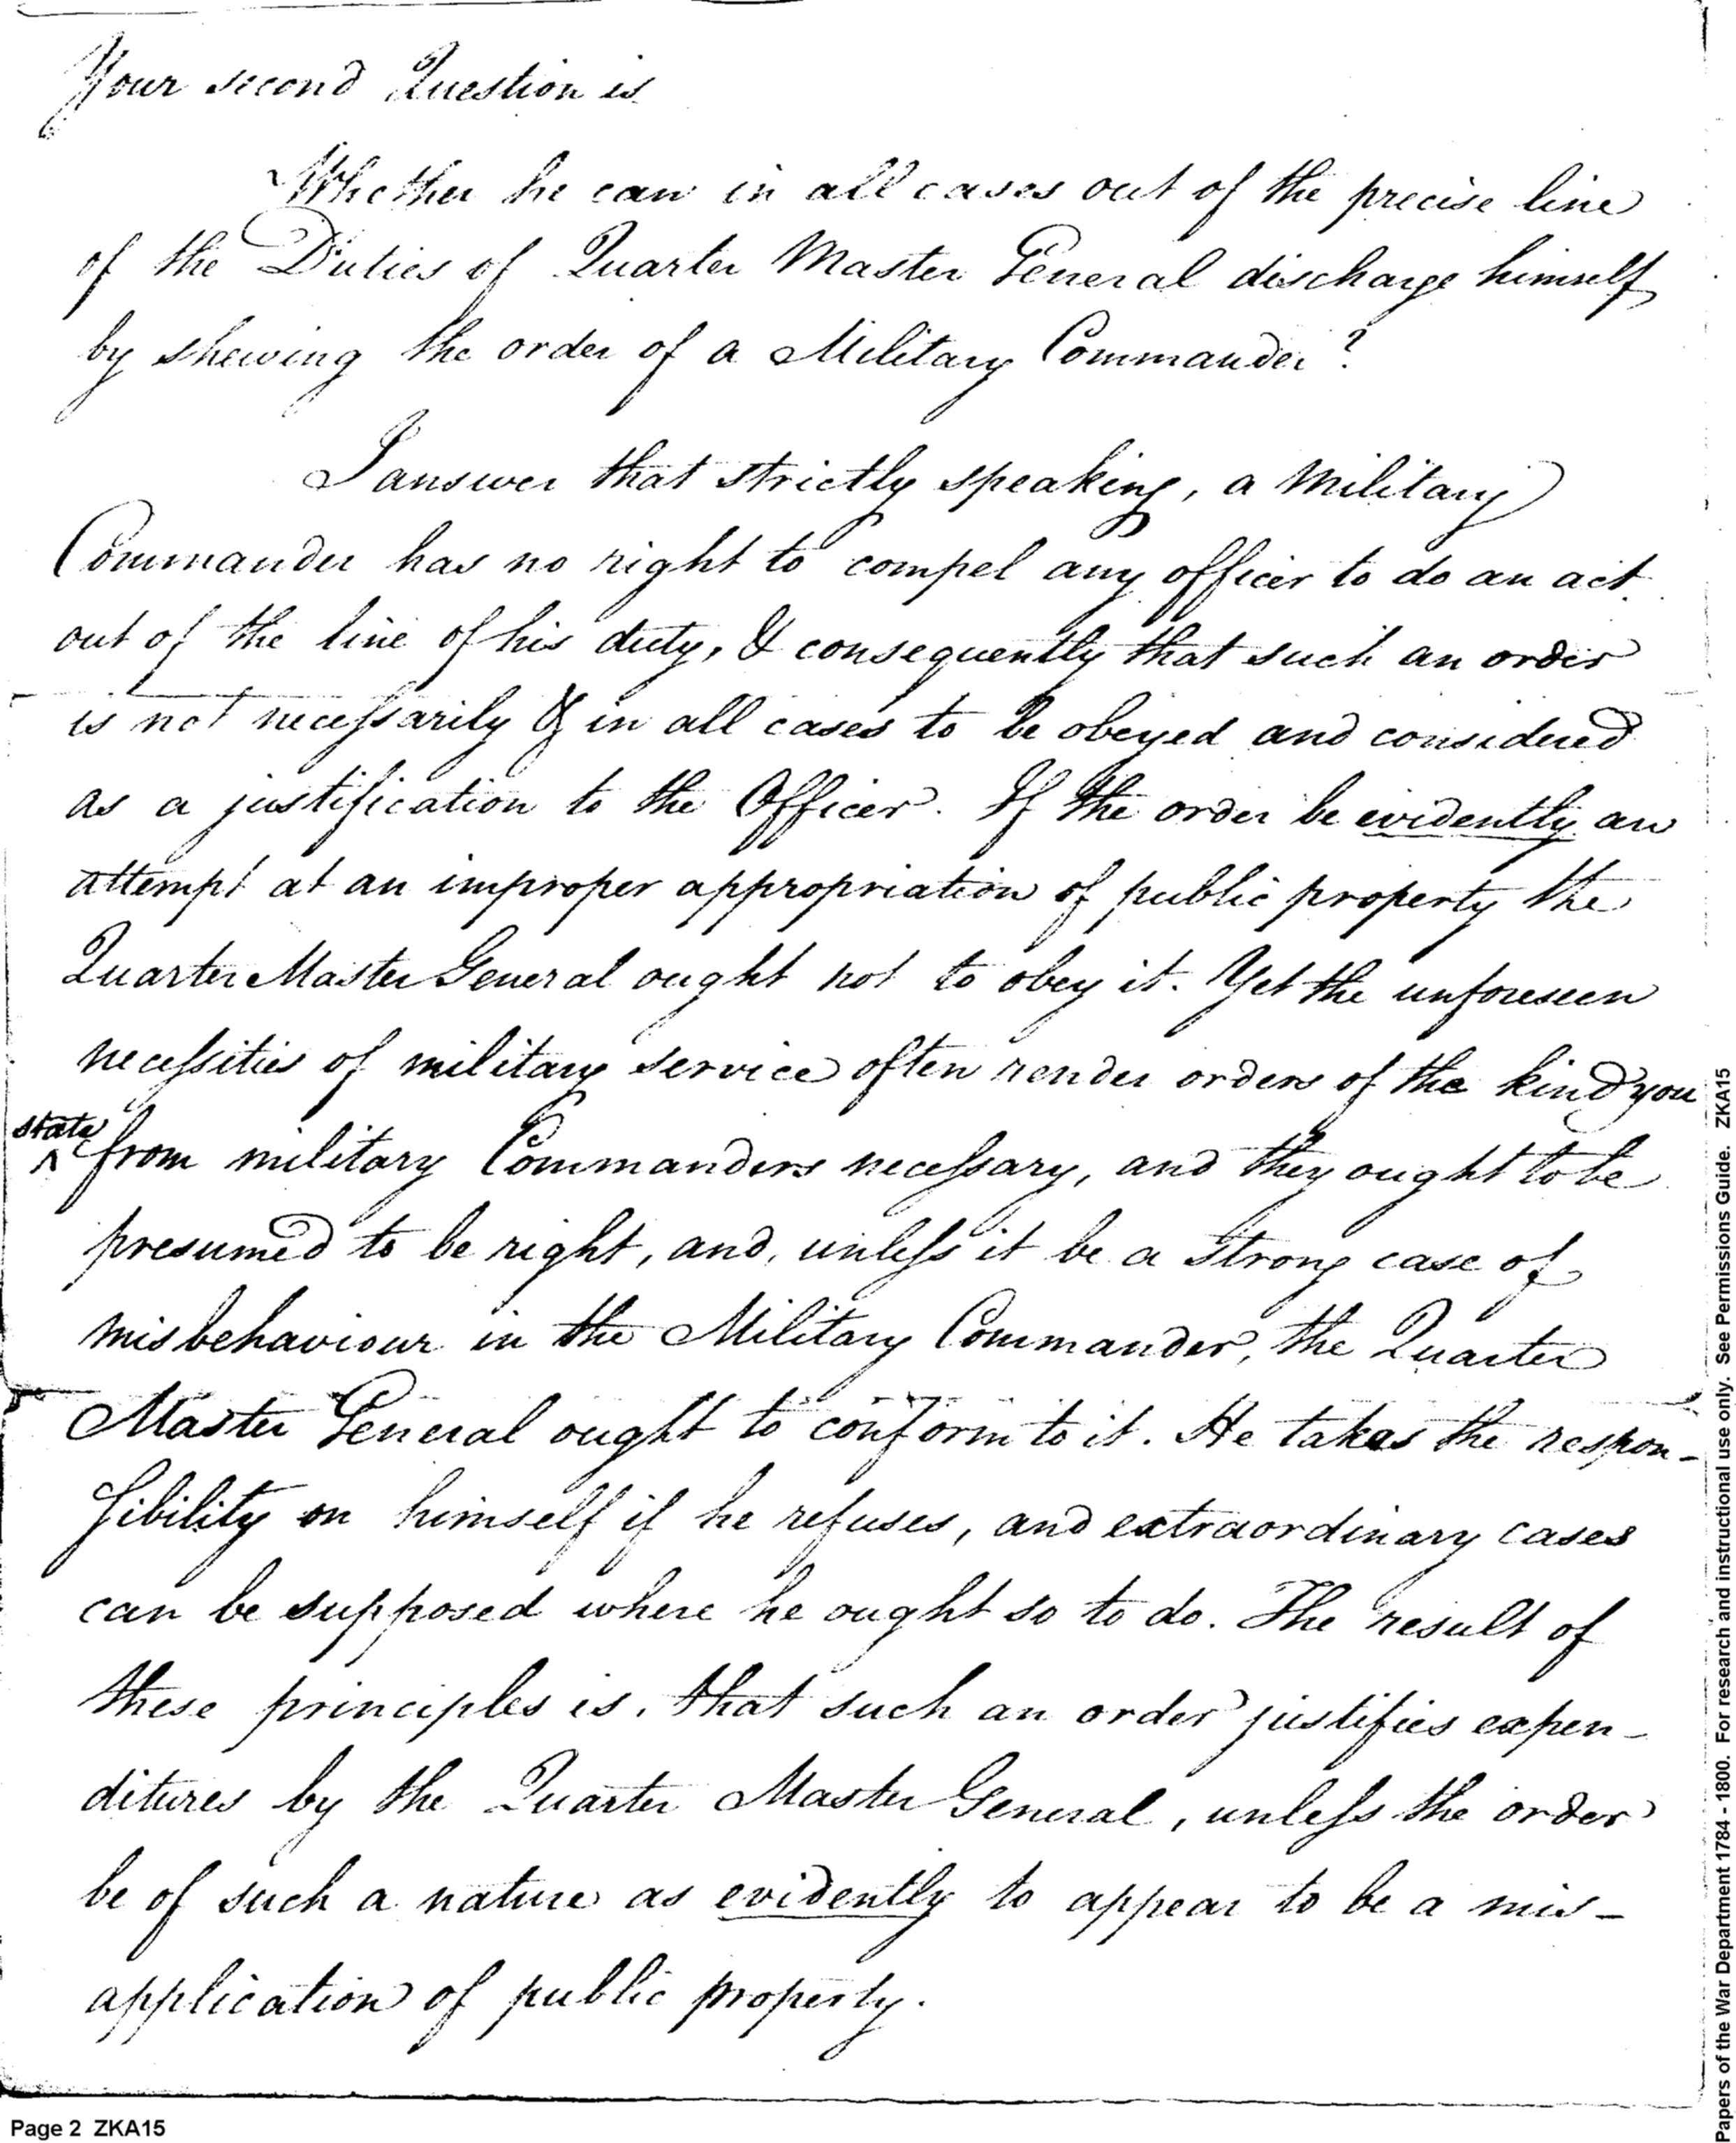 Your second Question is
Whether he can in all cases out of the precise line
of the Duties of Quarter Master General discharge himself
by shewing the order of a Military Commander?
I answer that strictly speaking, a Military
Commander has no right to compel any officer to do an act
out of the line of his duty, & consequently that such an order
is not necessarily & in all cases to be obeyed and considered
as a justification to the Officer. If the order be evidently an
attempt at an improper appropriation of public property the
Quarter Master General ought not to obey it. Yet the unforeseen
necessities of military service often render orders of the kind you
state
^ from military Commanders necessary, and they ought to be
presumed to be right, and, unless it be a strong case of
misbehaviour in the Military Commander, the Quarter
Master General ought to conform to it. He takes the respon-
sibility on himself if he refuses, and extraordinary cases
can be supposed where he ought so to do. The result of
these principles is, that such an order justifies expen-
ditures by the Quarter Master General, unless the order
be of such a nature as evidently to appear to be a mis-
application of public property.
Page 2 ZKA15
Papers of the War Department 1784 - 1800. For research and instructional use only. See Permissions Guide. ZKA15